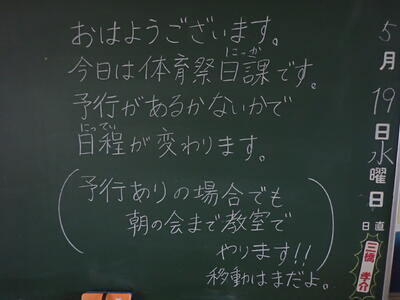 おはようございます。
今日は体育祭日課です。
にっか
予行があるかないかで
日程が変わります。
にってい
(予行ありの場合でも
朝の会まで教室で
やります!!)
移動はまだよ。
5月19日水曜日
日直
三橋 孝介